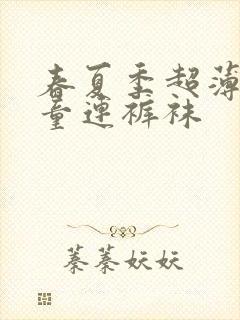 春夏季超薄
童连裤袜
蓁蓁妖妖